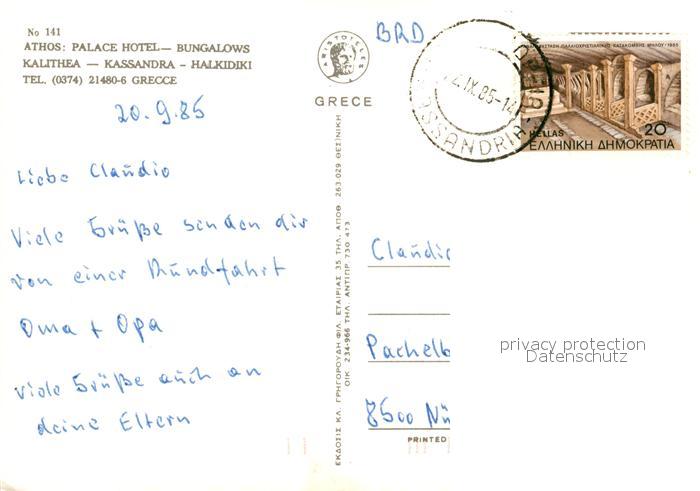 No 141
ATHOS: PALACE HOTEL— BUNGALOWS
KALITHEA — KASSANDRA - HALKIDIKI
TEL. (0374) 21480-6 GRECCE
20.9.85
Liebe Claudio
Viele Grüße senden dir
von einer Rundfahrt
Oma + Opa
viele Grüße auch an
deine Eltern
ARISTOTELES
GRECE
ΕΚΔΟΣΙΣ ΚΛ. ΓΡΗΓΟΡΟΥΔΗ ΦΙΛ. ΕΤΑΙΡΙΑΣ 35 ΤΗΛ. ΑΠΟΘ 263.029 ΘΕΣ)ΝΙΚΗ
ΟΙΚ 234-966 ΤΗΛ. ΑΝΤΙΠΡ 730 473
BRD
IX.85-14
ASSANDRIA
1985
HELLAS 20
ΕΛΛΗΝΙΚΗ ΔΗΜΟΚΡΑΤΙΑ
Claudio
Pachelb
8500 Nü
PRINTED
privacy protection
Datenschutz